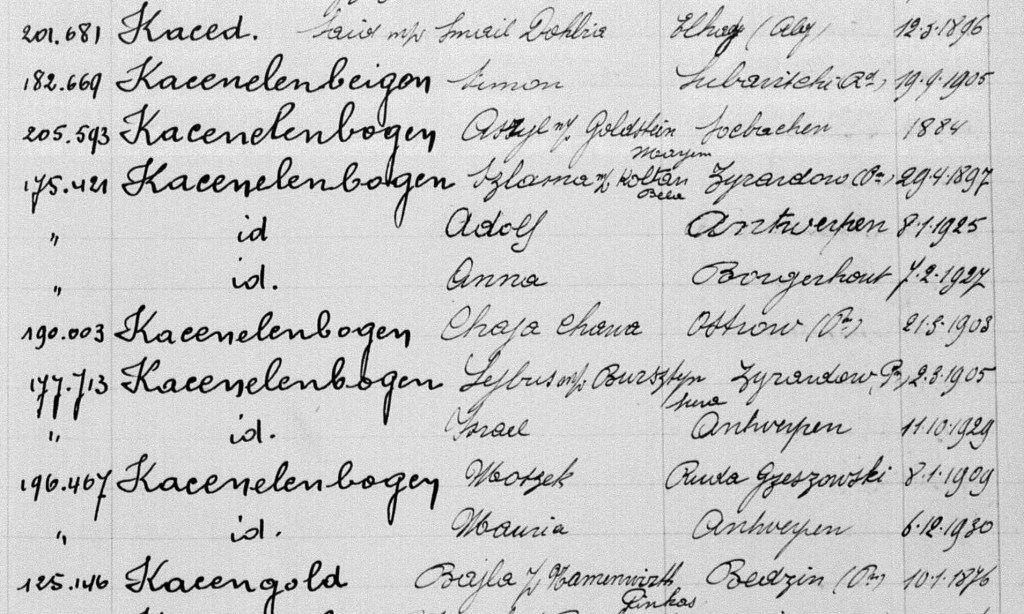 201.681 Kaced. Said m/v Smail Dohlia Elhag (Alg) 12.3.1896
182.669 Kacenelenbeigen Simon Lubavitchi 19.9.1905
205.593 Kacenelenbogen Aszyl m/v Goldstein Mayem 1884
175.421 Kacenelenbogen Szlama m/v Koltan Bela Zyrardow (Pn) 29.4.1897
" id Adolf Antwerpen 8.1.1925
" id. Anna Borgerhout 7.2.1927
190.003 Kacenelenbogen Chaja Chawa Ostrow (Pn) 21.3.1903
177.713 Kacenelenbogen Lejbus m/v Bursztyn Sura Zyrardow (Pn) 2.3.1905
" id. Israel Antwerpen 11.10.1929
196.467 Kacenelenbogen Moszek Ruda Gzeszowski 8.1.1909
" id. Mauria Antwerpen 6.12.1930
125.146 Kacengold Bajla Pinkas Bedzin (Pn) 10.1.1876